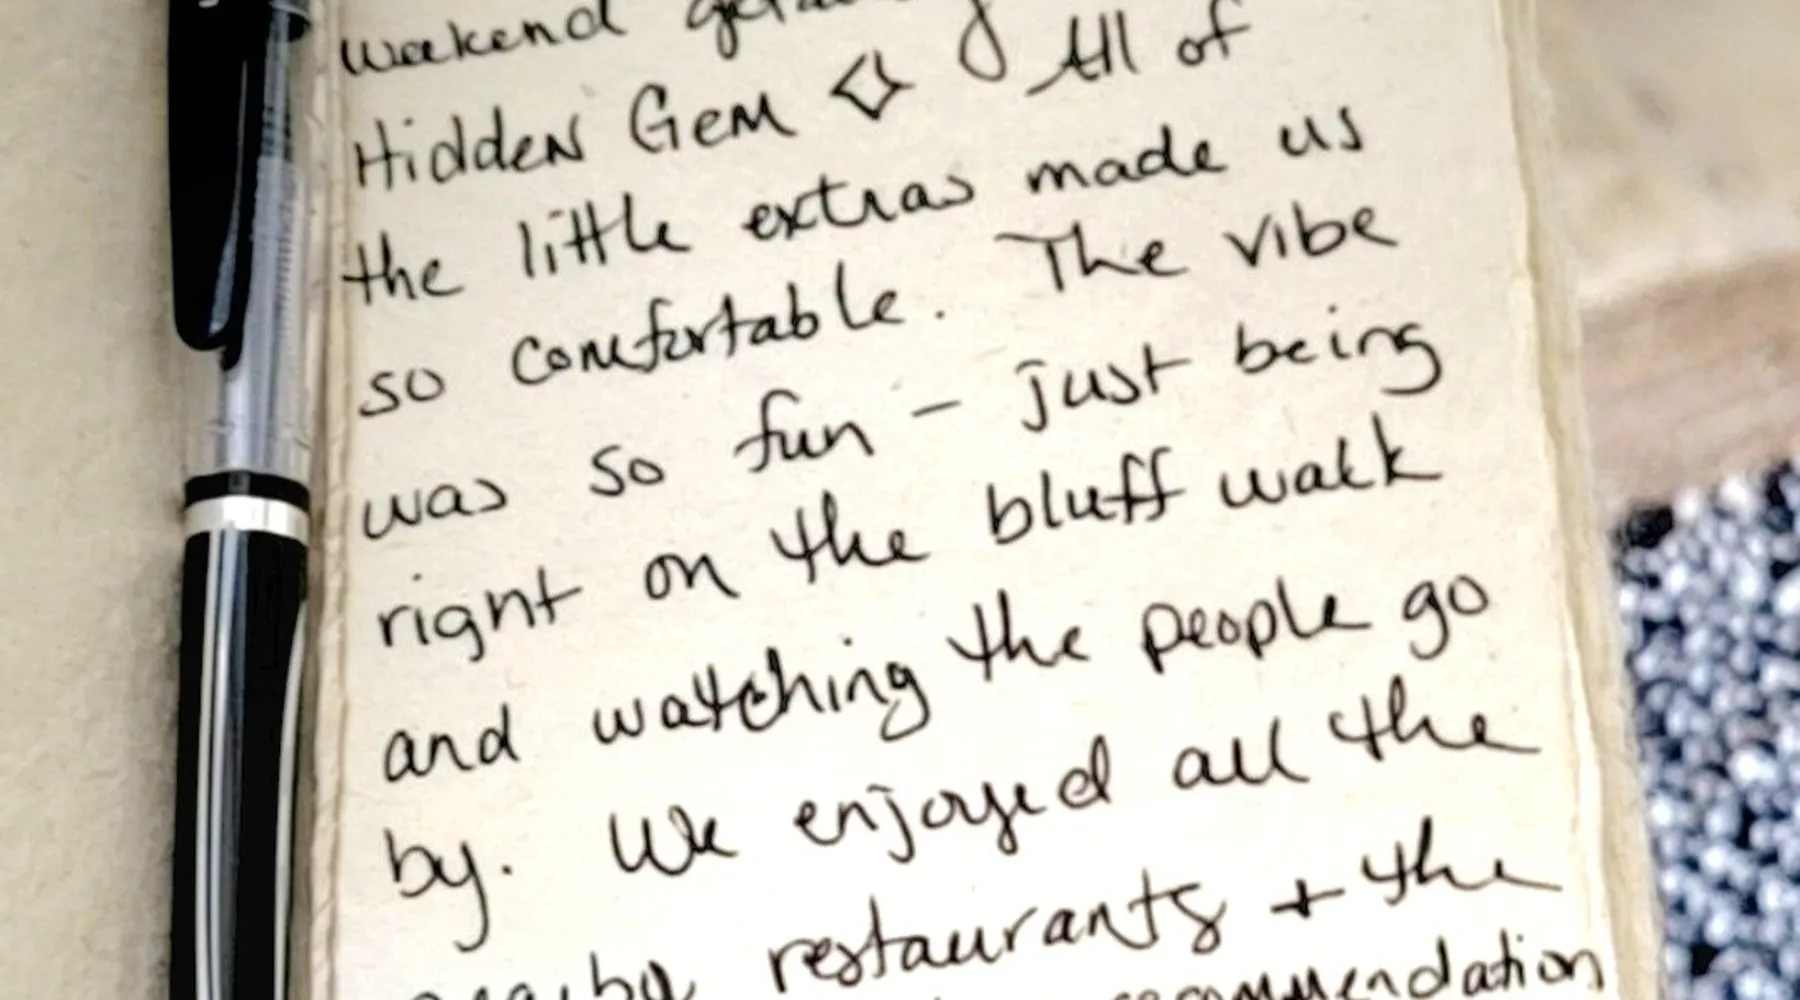 weekend
Hidden Gem ◇ All of
the little extras made us
so comfortable. The vibe
was so fun – just being
right on the bluff walk
and watching the people go
by. We enjoyed all the
nearby restaurants + the
recommendation